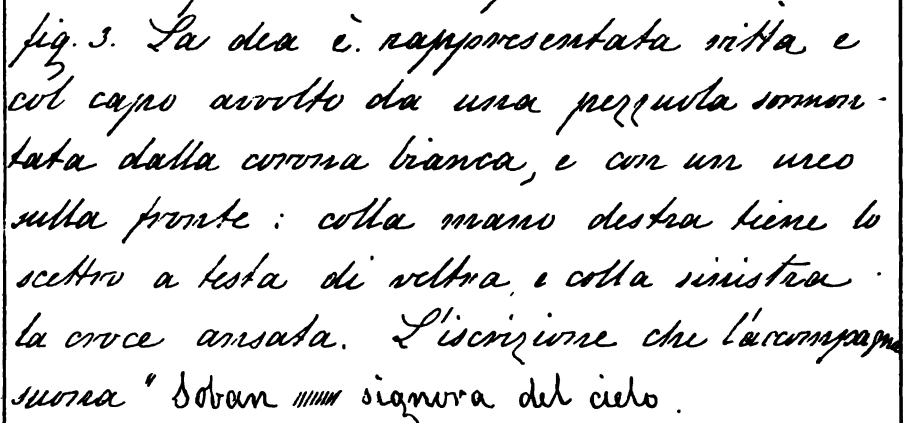 fig. 3. La dea è. rappresentata ritta e
col capo avvolto da una pezzuola sormon-
tata dalla corona bianca, e con un ureo
sulla fronte: colla mano destra tiene lo
scettro a testa di veltra, e colla sinistra
la croce ansata. L'iscrizione che l'accompagna
suona "Soban signora del cielo.